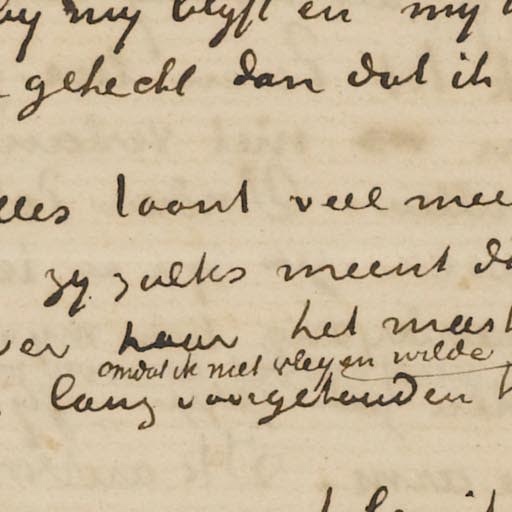 by my blyft en my
gehecht dan dat ik
lles toont veel mee
zy zulks meent d
ver haar het meest
omdat ik niet vleyen wilde
lang voorgehouden